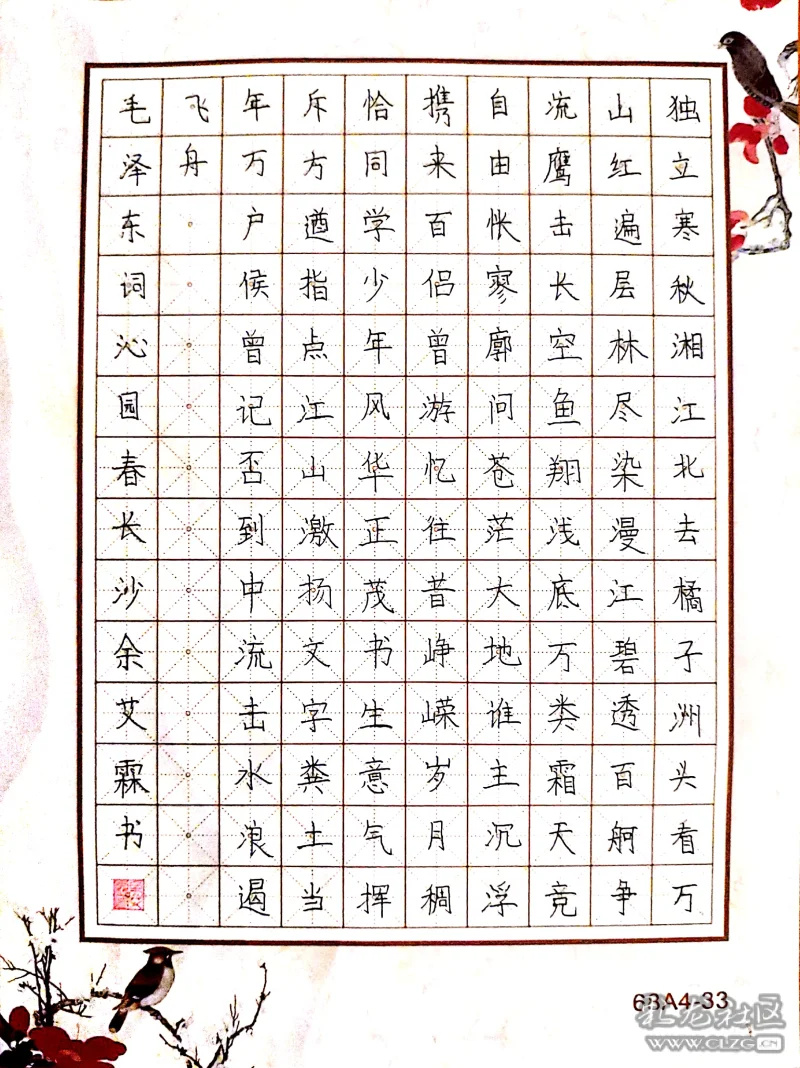 独立寒秋湘江北去橘子洲头看万
山红遍层林尽染漫江碧透百舸争
流鹰击长空鱼翔浅底万类霜天竞
自由怅寥廓问苍茫大地谁主沉浮
携来百侣曾游忆往昔峥嵘岁月稠
恰同学少年风华正茂书生意气挥
斥方遒指点江山激扬文字粪土当
年万户侯曾记否到中流击水浪遏
飞舟
毛泽东词沁园春长沙余艾霖书
6BA4-33
社区
www.CLZG.CN